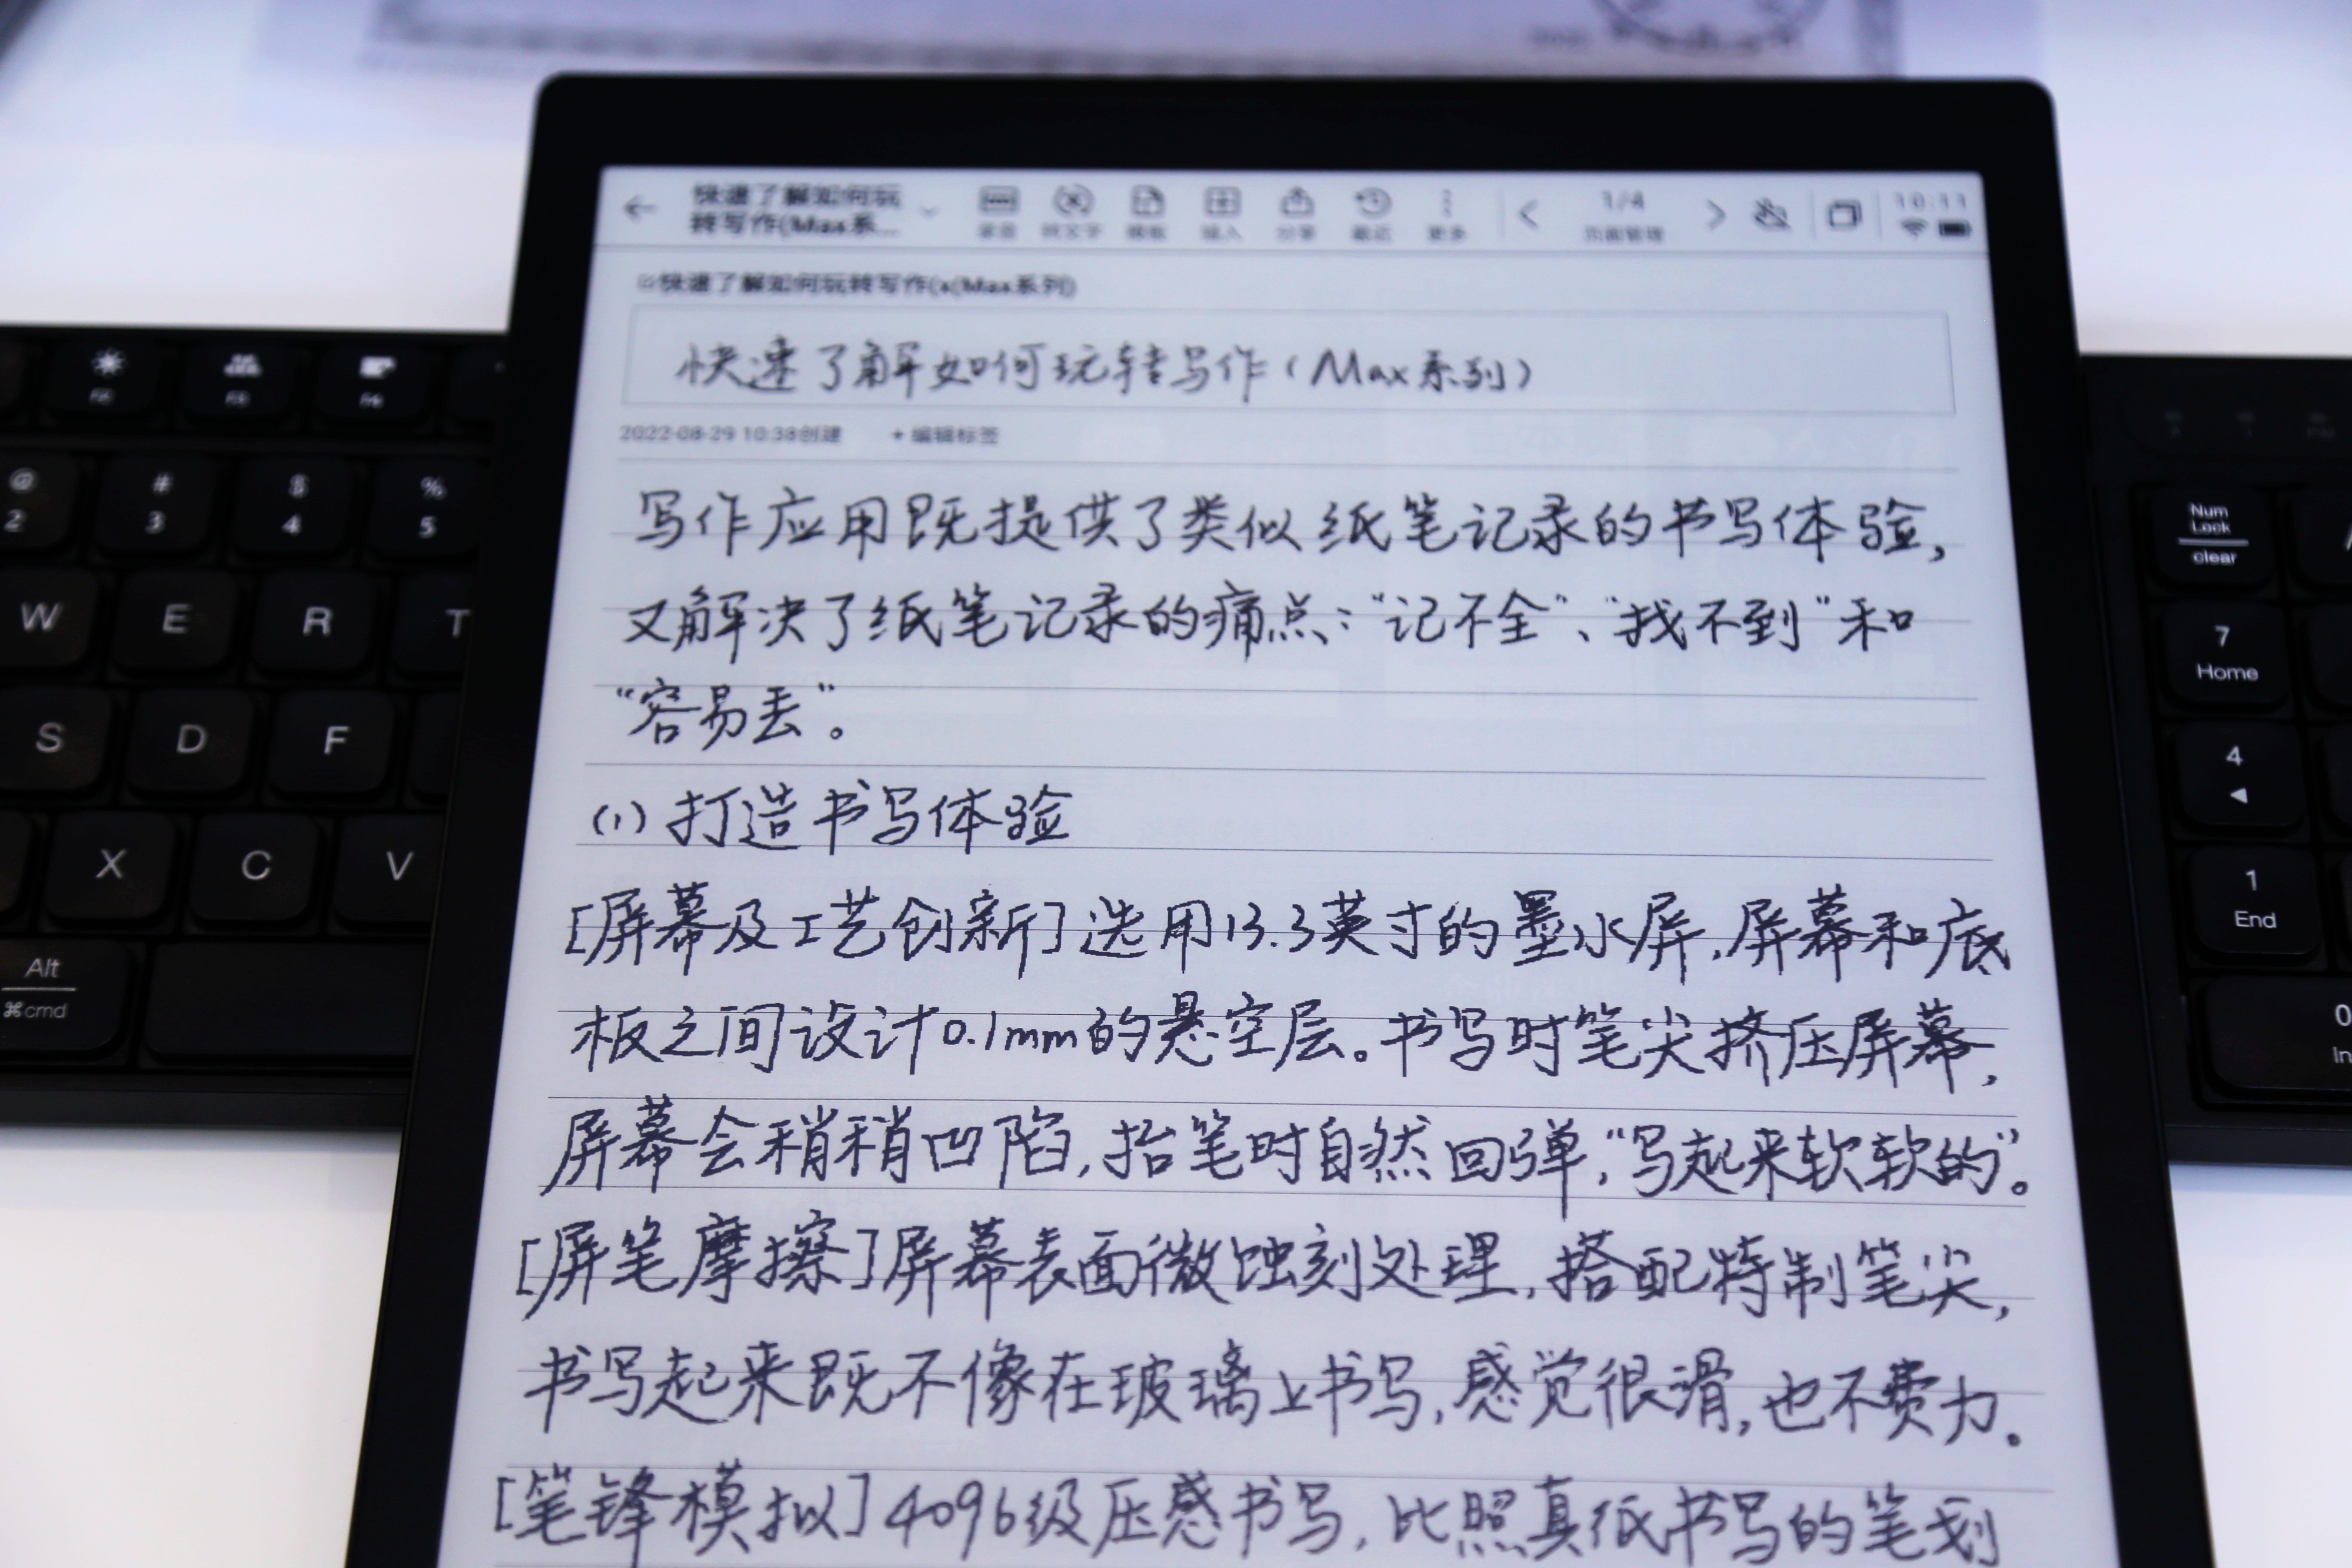 快速了解如何玩
转写作(Max系...
录音 转文字 模板 插入 分享 最近 更多
1/4
页面管理
10:11
快速了解如何玩转写作(x(Max系列)
快速了解如何玩转写作（Max系列）
2022-08-29 10:38创建 + 编辑标签
写作应用既提供了类似纸笔记录的书写体验，
又解决了纸笔记录的痛点：“记不全”、“找不到”和
“容易丢”。
(1) 打造书写体验
[屏幕及工艺创新]选用13.3英寸的墨水屏，屏幕和底
板之间设计0.1mm的悬空层。书写时笔尖挤压屏幕，
屏幕会稍稍凹陷，抬笔时自然回弹，“写起来软软的”。
[屏笔摩擦]屏幕表面微蚀刻处理，搭配特制笔尖，
书写起来既不像在玻璃上书写，感觉很滑，也不费力。
[笔锋模拟]4096级压感书写，比照真纸书写的笔划
F2 F3 F4
@ # $ %
2 3 4 5
W E R T
S D F
X C V
Alt
⌘cmd
Num
Lock
clear
7
Home
4
◄
1
End
0
In